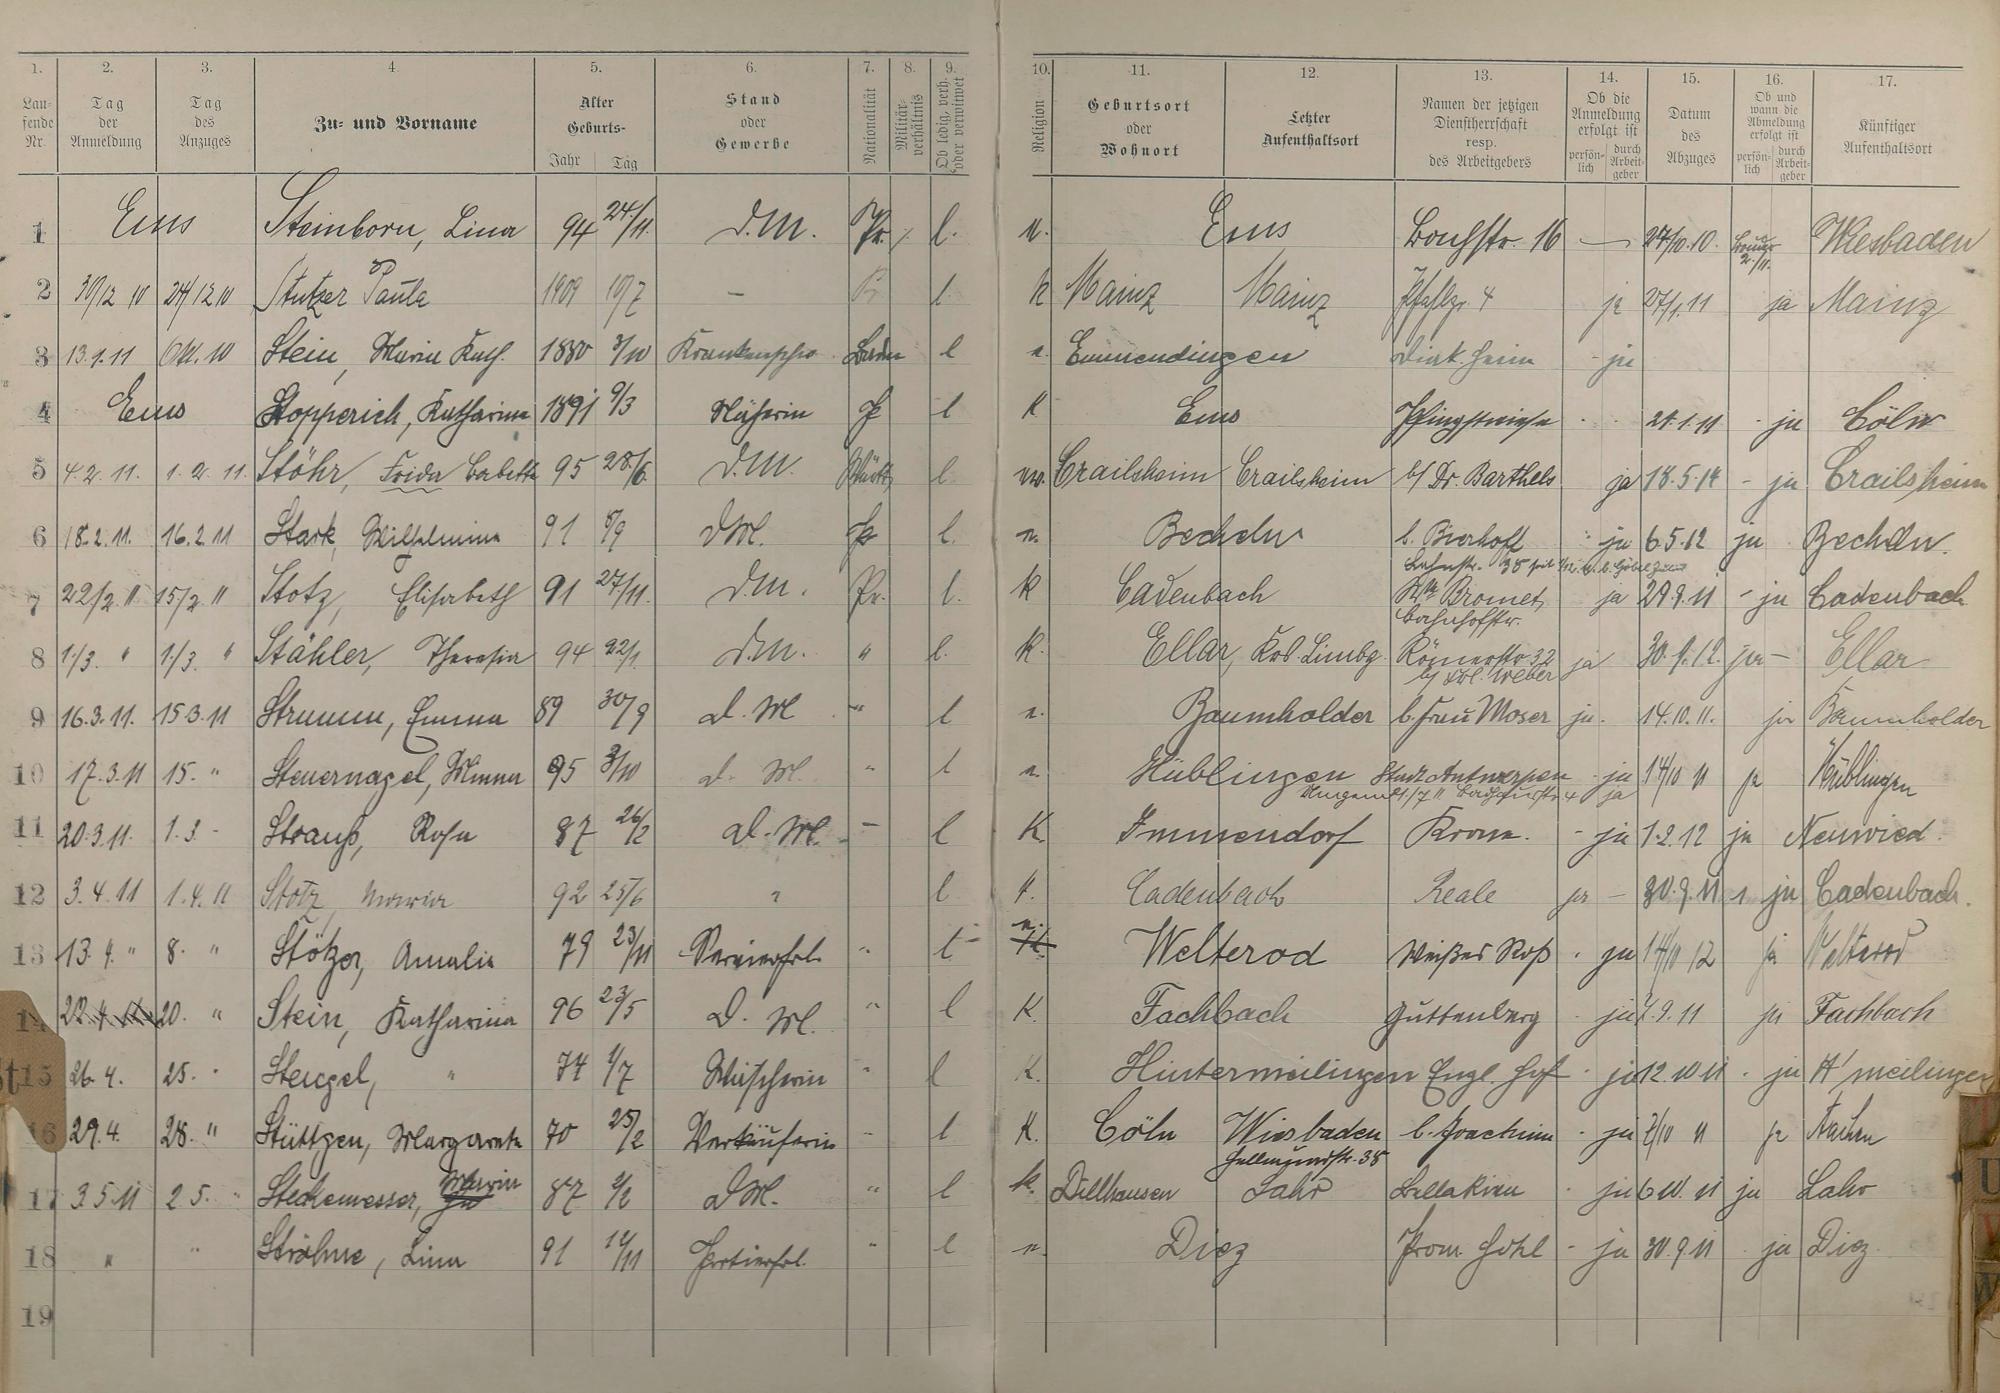 1. 2. 3. 4 5. 6. 7. 8. 9. 10. 11. 12. 13. 14. 15. 16. 17.
Laufende Nr. Tag der Anmeldung Tag des Anzuges Zu- und Vorname Alter Geburts- Jahr Tag Stand oder Gewerbe Nationalität Militärverhältnis Ob ledig, verh. oder verwitwet Religion Geburtsort oder Wohnort Letzter Aufenthaltsort Namen der jetzigen Dienstherrschaft resp. des Arbeitgebers Ob die Anmeldung erfolgt ist persönlich durch Arbeitgeber Datum des Abzuges Ob und wann die Abmeldung erfolgt ist persönlich durch Arbeitgeber Künftiger Aufenthaltsort
1 Ems Steinborn, Lina 94 24/11. D.M. Pr. l. Ems 16 — 27/10.10. Wiesbaden
2 30/12 10 24/12 10 Stutzer Paula 1909 10/7 — Pr l k Mainz Mainz 4 ja 27/1.11 ja Mainz
3 13.1.11 Okt. 10 Stein, Maria Kath. 1880 3/10 Baden l Emmendingen Diak. heim - ja
4 Ems Stopperich, Katharina 1891 9/3 Näherin l K Ems Pfingstwiese 21.1.11 - ja Cöln
5 4.2.11. 1.2.11. Stöhr, Frida Babette 95 28/6. D.M. Württ l Crailsheim Crailsheim b/ Dr. Barthels ja 18.5.14 - ja Crailsheim
6 18.2.11. 16.2.11 Stark, Wilhelmine 91 8/9 DM. l. Becheln b. Bierhoff ja 6.5.12 ja Becheln.
7 22/2 11 15/2 11 Stotz, Elisabeth 91 27/11. D.M. Pr. l. k Cadenbach Bromet, ja 29.9.11 - ja Cadenbach
Bahnhofstr.
8 1/3. " 1/3. " Stähler, Theresia 94 22/1. D.M. " l. k. Ellar, Krs. Limbg. Römerstr. 32 ja 30.9.12. ja — Ellar
b/ Frl. Weber
9 16.3.11. 15.3.11 Strumm, Emma 89 30/9 D. M " l Baumholder b. Frau Moser ja. 14.10.11. ja Baumholder
10 17.3.11 15. " Steuernagel, Minna 95 3/10 D. M. " l Hüblingen Stadt Antwerpen - ja 14/10 11 ja Hüblingen
ja
11 20.3.11. 1.3 - Strauß, Rosa 87 26/2 D. M. - l K. Immendorf Krone. - ja 1.2.12 ja Neuwied.
12 3.4.11 1.4.11 Stotz, Maria 92 25/6 " l Cadenbach Reale ja — 30.9.11 ja Cadenbach.
13 13.4. " 8. " Stötzer, Amalie 79 23/11 " l Welterod Weißes Roß ja 14/10 12 ja Welterod
14 22.4.11 20. " Stein, Katharina 96 23/5 D. M. " l K. Fachbach Guttenberg - ja 7.9.11 ja Fachbach
15 26.4. 25. " Stengel, " 74 1/7 Wäscherin " l K. Hintermeilingen Engl. Hof - ja 12.10 11 - ja H'meilingen
16 29.4. 28. " Stüttgen, Margarete 70 25/2 Verkäuferin - l K. Cöln Wiesbaden b. Joachim - ja 7/10 11 ja Aachen
17 3.5.11 2.5. " Steckemesser, Maria 87 2/2 DM. " l k. Dillhausen Lahr - ja 6.10.11 ja Lahr
18 " " Ströhme, Lina 91 12/11 " l Diez Prom. Hotel - ja 30.9.11 - ja Diez
19